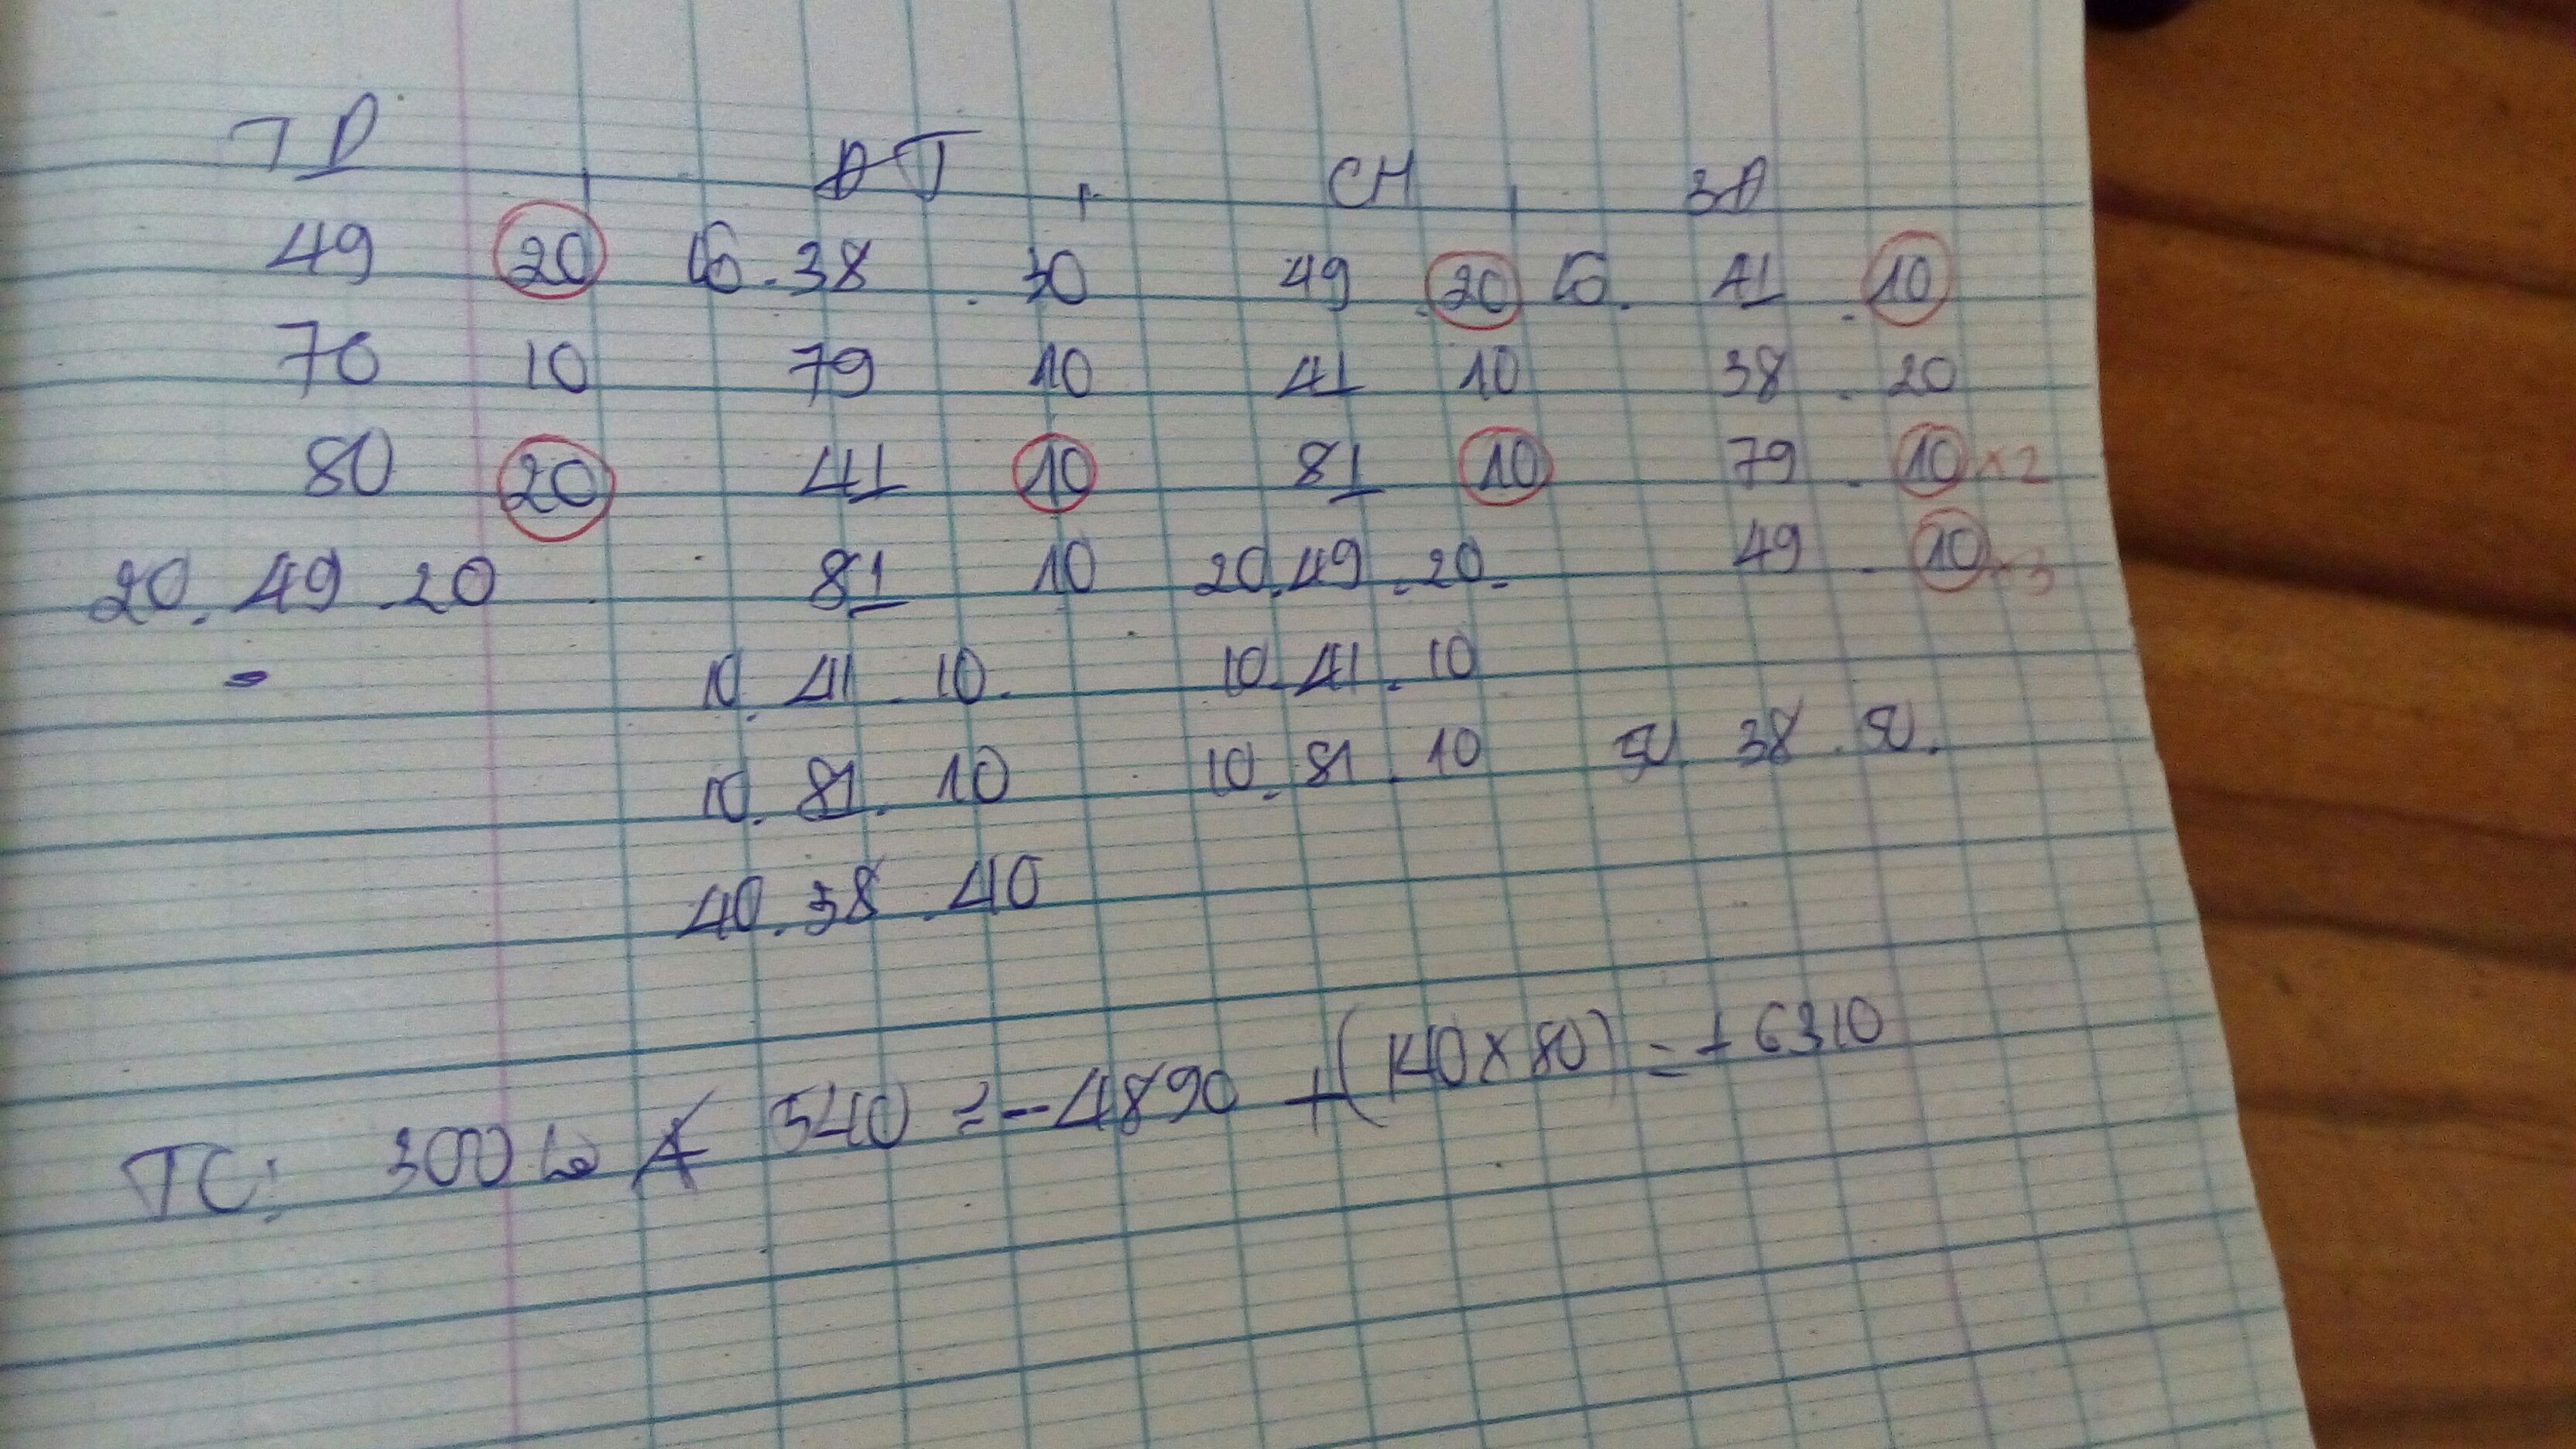 7D DT CH 3D
49 20 lô. 38 . 30 49 . 20 lô. 41 . 10
70 10 79 10 41 10 38 . 20
80 20 41 10 81 10 79 . 10 x2
20. 49 . 20 81 10 20. 49 . 20. 49 . 10 x3
10. 41 . 10. 10. 41 . 10
10. 81 . 10 10. 81 . 10 50. 38 . 50.
40. 38 . 40
TC: 300 lô 540 = -4890 + (140 x 80) = + 6310